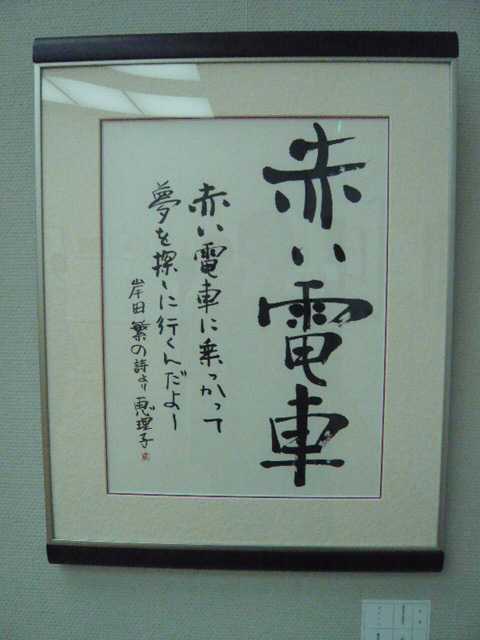 赤い電車
赤い電車に乗っかって
夢を探しに行くんだよ〜
岸田繁の詩より 恵理子